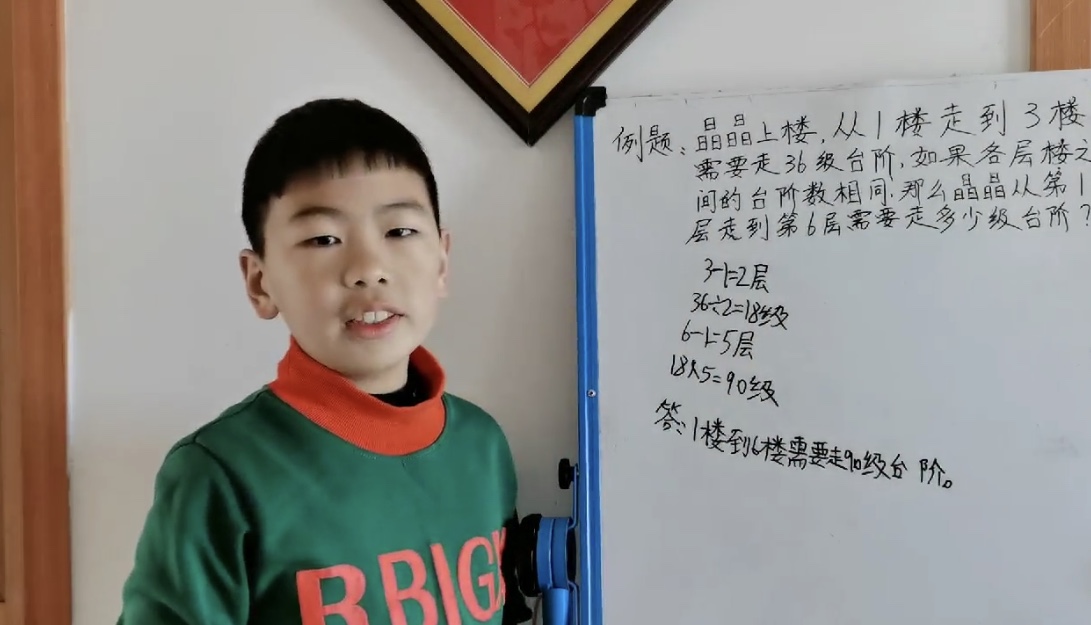 例题:晶晶上楼,从1楼走到3楼
需要走36级台阶,如果各层楼之
间的台阶数相同,那么晶晶从第1
层走到第6层需要走多少级台阶?
3-1=2层
36÷2=18级
6-1=5层
18×5=90级
答:1楼到6楼需要走90级台阶。
BBIG